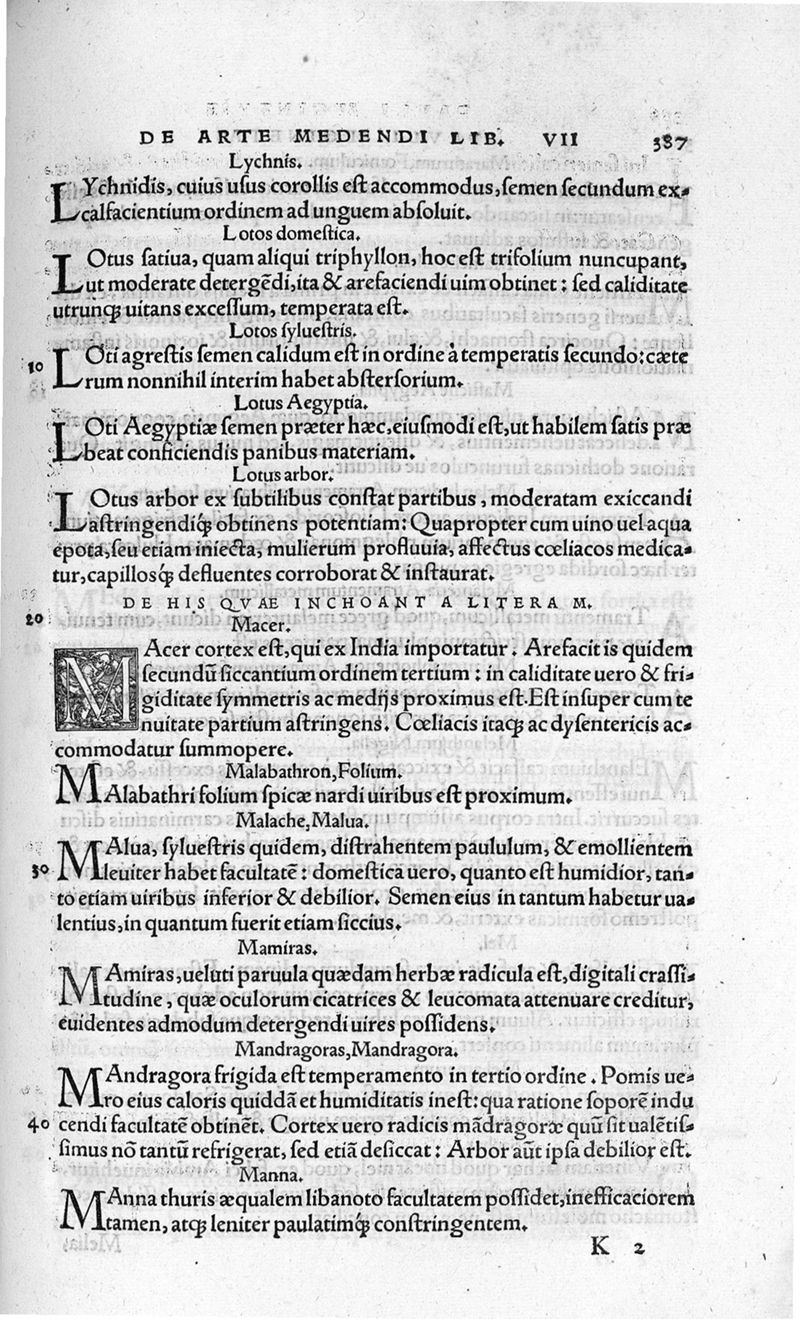 DE ARTE MEDENDI LIB. VII 387
Lychnis.
LYchnidis, cuius usus corollis est accommodus, semen secundum ex-
calfacientium ordinem ad unguem absoluit.
Lotos domestica.
LOtus satiua, quam aliqui triphyllon, hoc est trifolium nuncupant,
ut moderate detergẽdi, ita & arefaciendi uim obtinet: sed caliditate
utrunq; uitans excessum, temperata est.
Lotos syluestris.
10 LOti agrestis semen calidum est in ordine à temperatis secundo: cæte
rum nonnihil interim habet abstersorium.
Lotus Aegyptia.
LOti Aegyptiæ semen præter hæc, eiusmodi est, ut habilem satis præ
beat conficiendis panibus materiam.
Lotus arbor.
LOtus arbor ex subtilibus constat partibus, moderatam exiccandi
astringendiq; obtinens potentiam: Quapropter cum uino uel aqua
epota, seu etiam iniecta, mulierum profluuia, affectus cœliacos medica-
tur, capillosq; defluentes corroborat & instaurat.
DE HIS QVAE INCHOANT A LITERA M.
20 Macer.
MAcer cortex est, qui ex India importatur. Arefacit is quidem
secundũ siccantium ordinem tertium: in caliditate uero & fri-
giditate symmetris ac medijs proximus est. Est insuper cum te
nuitate partium astringens. Cœliacis itaq; ac dysentericis ac-
commodatur summopere.
Malabathron, Folium.
MAlabathri folium spicæ nardi uiribus est proximum.
Malache, Malua.
MAlua, syluestris quidem, distrahentem paululum, & emollientem
30 leuiter habet facultatẽ: domestica uero, quanto est humidior, tan-
to etiam uiribus inferior & debilior. Semen eius in tantum habetur ua-
lentius, in quantum fuerit etiam siccius.
Mamiras.
MAmiras, ueluti paruula quædam herbæ radicula est, digitali crassi-
tudine, quæ oculorum cicatrices & leucomata attenuare creditur,
euidentes admodum detergendi uires possidens.
Mandragoras, Mandragora.
MAndragora frigida est temperamento in tertio ordine. Pomis ue-
ro eius caloris quiddã et humiditatis inest: qua ratione soporẽ indu
40 cendi facultatẽ obtinẽt. Cortex uero radicis mãdragoræ quũ sit ualẽtis-
simus nõ tantũ refrigerat, sed etiã desiccat: Arbor aũt ipsa debilior est.
Manna.
MAnna thuris æqualem libanoto facultatem possidet, inefficaciorem
tamen, atq; leniter paulatimq; constringentem.
K 2